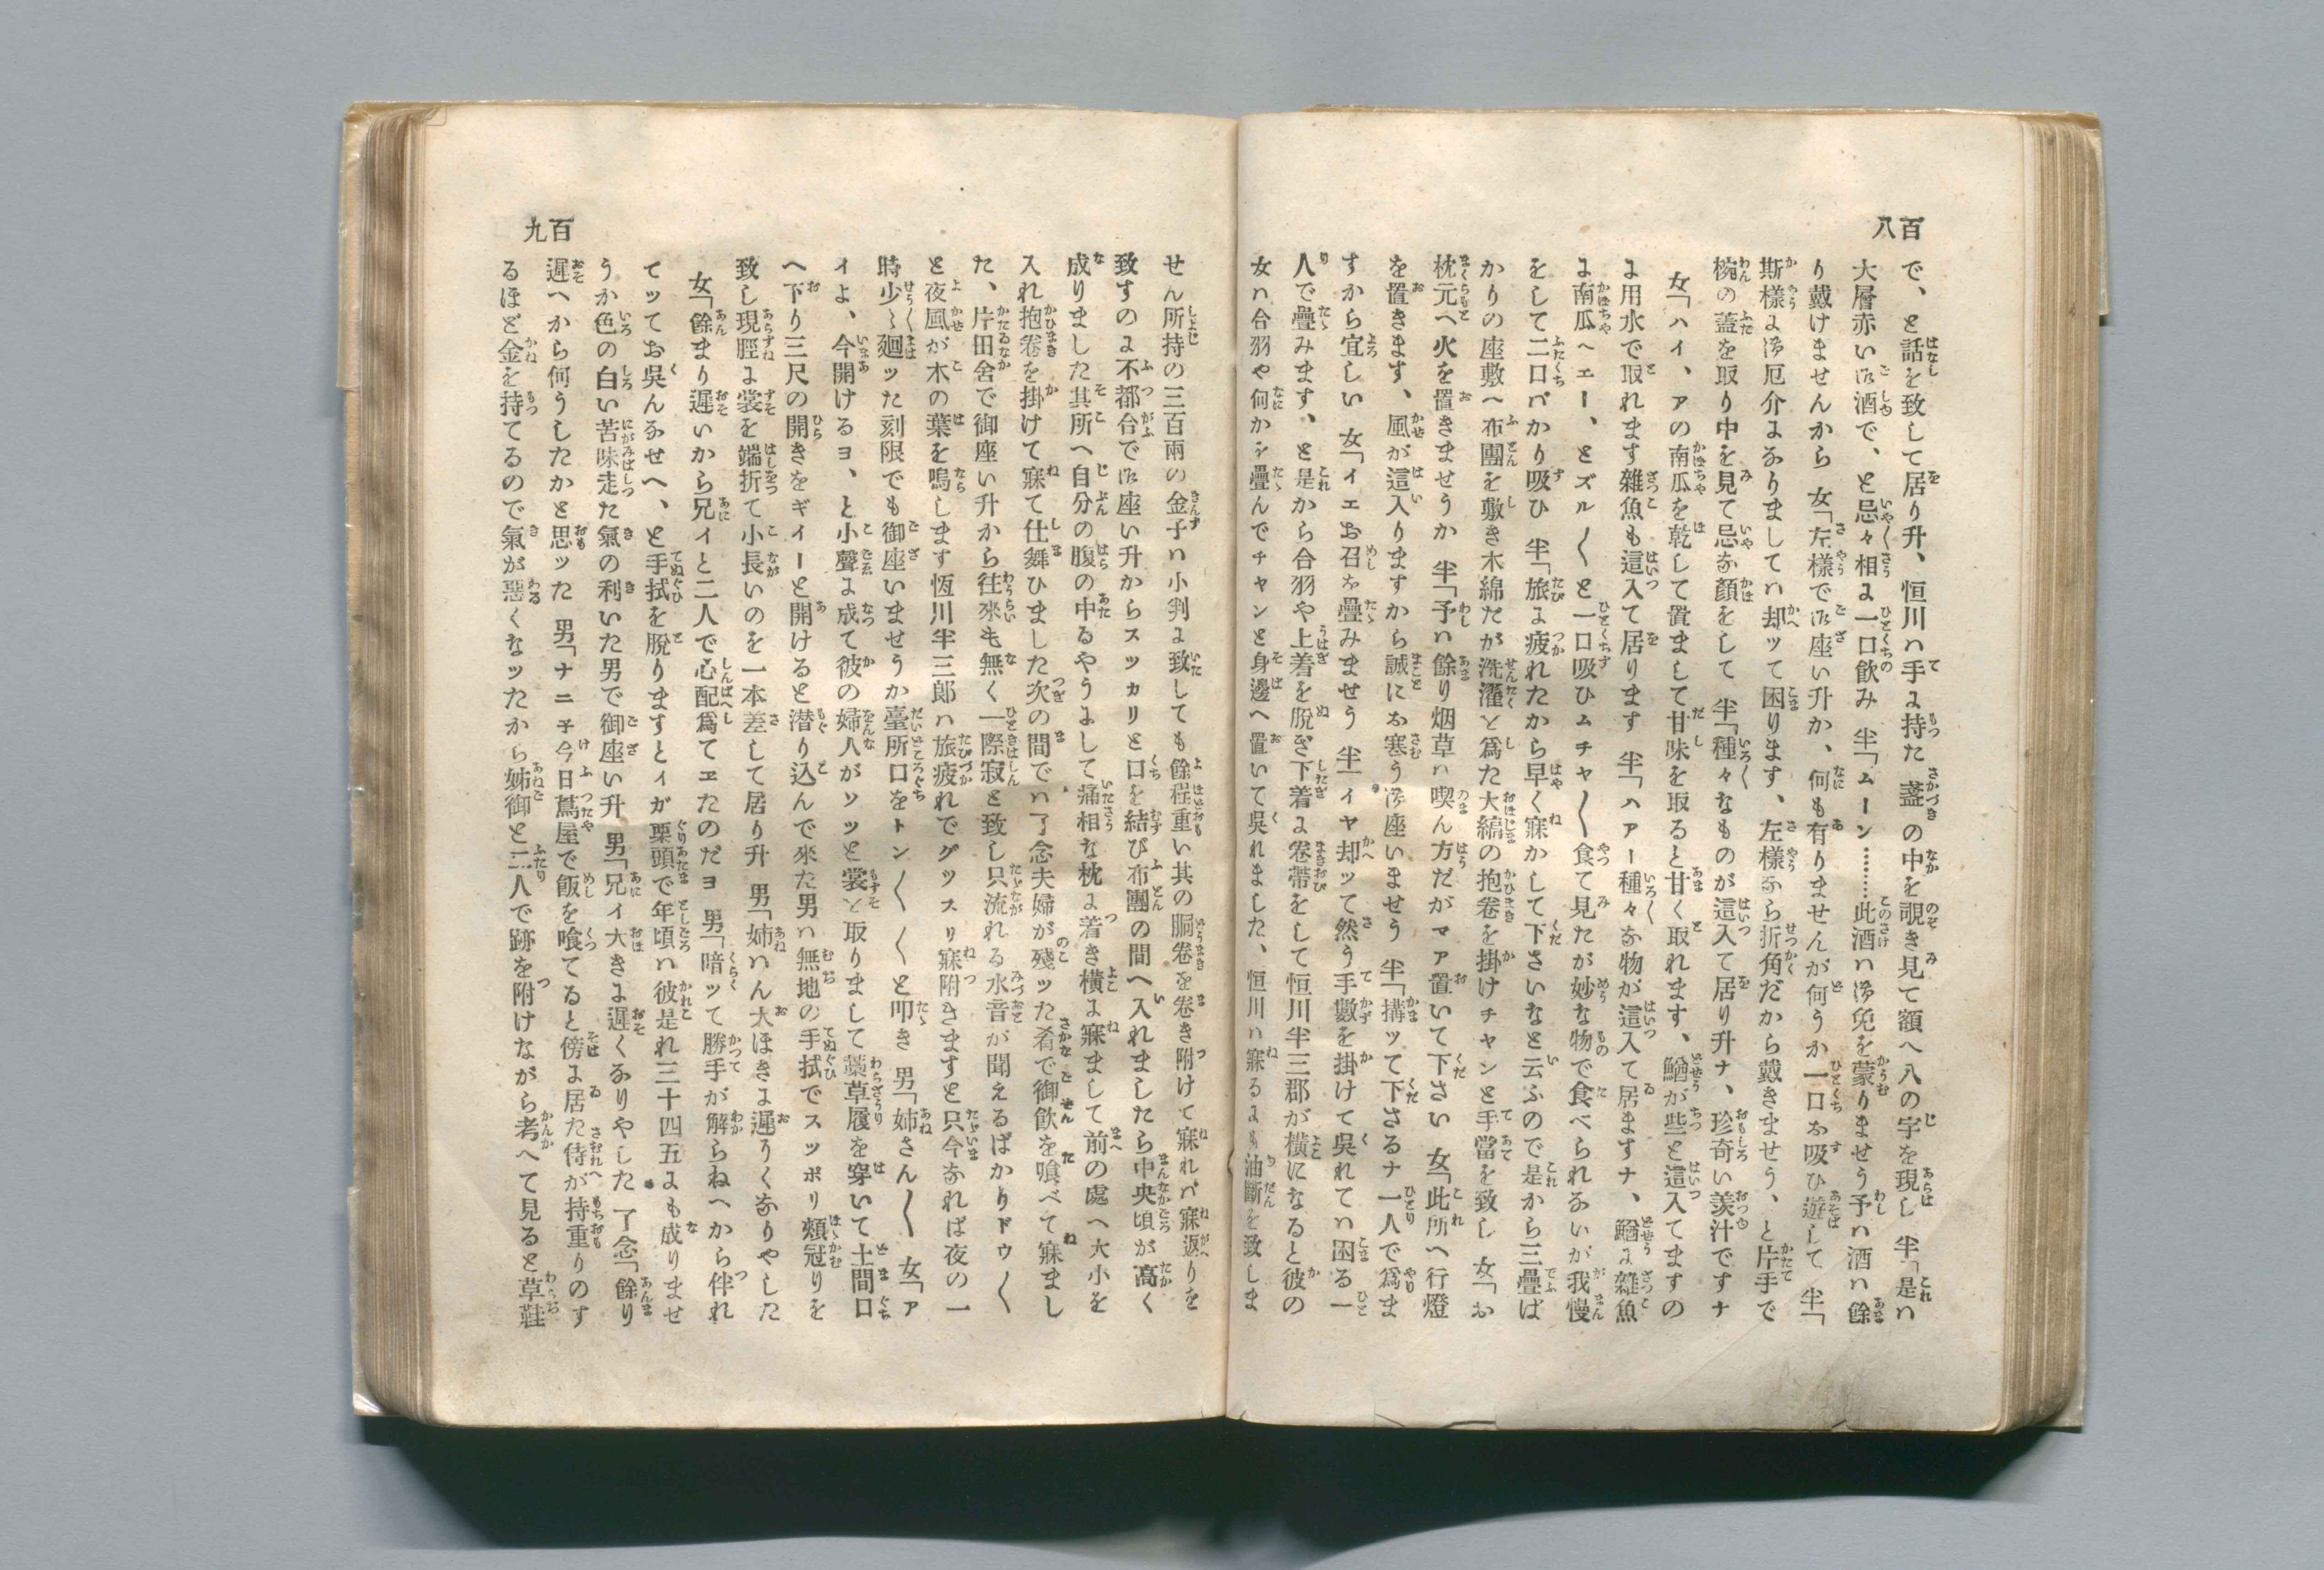 八百
で、と話を致して居り升、恒川ハ手に持た盞の中を覗き見て額へ八の字を現し半「是ハ
大層赤い御酒で、と忌々相に一口飲み 半「ムーン………此酒ハ御免を蒙りませう予ハ酒ハ餘
り戴けませんから 女「左樣で御座い升か、何も有りませんが何うか一口お吸ひ遊して 半「
斯樣に御厄介になりましてハ却ッて困ります、左樣なら折角だから戴きませう、と片手で
椀の蓋を取り中を見て忌な顏をして 半「種々なものが這入て居り升ナ、珍奇い羮汁ですナ
女「ハイ、アの南瓜を乾して置まして甘味を取ると甘く取れます、鰌が些と這入てますの
に用水で取れます雜魚も這入て居ります 半「ハアー種々な物が這入て居ますナ、鰌に雜魚
に南瓜ヘエー、とズル〱と一口吸ひムチャ〱食て見たが妙な物で食べられないが我慢
をして二口バかり吸ひ 半「旅に疲れたから早く寐かして下さいなと云ふので是から三疊ば
かりの座敷へ布團を敷き木綿だが洗濯と爲た大縞の抱卷を掛けチャンと手當を致し 女「お
枕元へ火を置きませうか 半「予ハ餘り烟草ハ喫ん方だがマア置いて下さい 女「此所へ行燈
を置きます、風が這入りますから誠にお寒う御座いませう 半「搆ッて下さるナ一人で爲ま
すから宜しい 女「イエお召を疊みませう 半「イヤ却ッて然う手數を掛けて呉れてハ困る一
人で疊みます、と是から合羽や上着を脱ぎ下着に卷帶をして恒川半三郎が横になると彼の
女ハ合羽や何かを疊んでチャンと身邊へ置いて呉れました、恒川ハ寐るにも油斷を致しま
九百
せん所持の三百兩の金子ハ小判に致しても餘程重い其の胴卷を卷き附けて寐れバ寐返りを
致すのに不都合で御座い升からスッカリと口を結び布團の間へ入れましたら中央頃が高く
成りました其所へ自分の腹の中るやうにして痛相な枕に着き横に寐まして前の處へ大小を
入れ抱卷を掛けて寐て仕舞ひました次の間でハ了念夫婦が殘ッた肴で御飮を喰べて寐まし
た、片田舍で御座い升から往來も無く一際寂と致し只流れる水音が聞えるばかりドウ〱
と夜風が木の葉を鳴します恆川半三郎ハ旅疲れでグッスリ寐附きますと只今なれば夜の一
時少〻廻ッた刻限でも御座いませうか臺所口をトン〱〱と叩き 男「姉さん〱 女「ア
イよ、今開けるヨ、と小聲に成て彼の婦人がソッと裳と取りまして藁草履を穿いて土間口
へ下り三尺の開きをギイーと開けると潜り込んで來た男ハ無地の手拭でスッポリ頰冠りを
致し現脛に裳を端折て小長いのを一本差して居り升 男「姉ハん大ほきに遲うくなりやした
女「餘まり遲いから兄イと二人で心配爲てヱたのだヨ 男「暗ッて勝手が解らねへから伴れ
てッてお呉んなせへ、と手拭を脱りますとイガ栗頭で年頃ハ彼是れ三十四五にも成りませ
うか色の白い苦味走た氣の利いた男で御座い升 男「兄イ大きに遲くなりやした 了念「餘り
遲へから何うしたかと思ッた 男「ナニチ今日蔦屋で飯を喰てると傍に居た侍が持重りのす
るほど金を持てるので氣が惡くなッたから姉御と二人で跡を附けながら考へて見ると草鞋